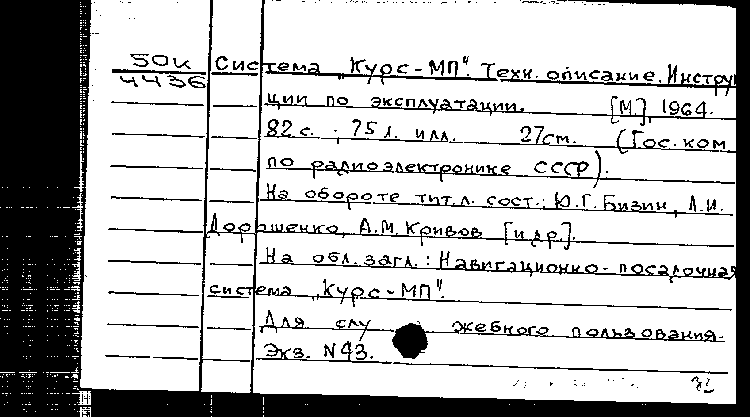 50к Система „Курс-МП". Техн. описание. Инстру
4436 ции по эксплуатации. [М.], 1964.
82 с.; 75 л. илл. 27см. (Гос. ком.
по радиоэлектронике СССР).
На обороте тит. л. сост.: Ю.Г. Бизин, Л.И.
Дорошенко, А.М. Кривов [и др.].
На обл. загл.: Навигационно-посадочная
система „Курс-МП".
Для служебного пользования.
Экз. N43.